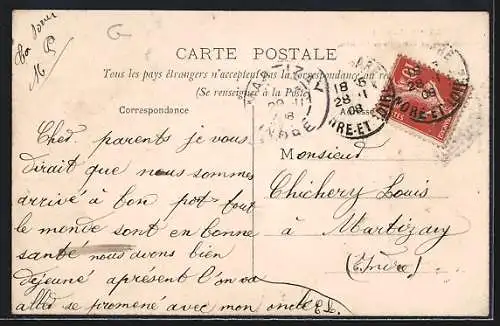 Ta soeur
M P
G
CARTE POSTALE
Tous les pays étrangers n'acceptent pas la correspondance au re
(Se renseigner à la Poste
Correspondance
Adresse
MARTIZAY
INDRE
18 5
28 11
08
INDRE-ET-LOIRE
10
Ched. parents je vous
dirait que nous sommes
arrivé à bon port tout
le monde sont en bonne
santé nous avons bien
dejeuné aprésent l'on va
allé se promené avec mon oncle
Monsieur
Chichery Louis
à Martizay
(Indre)